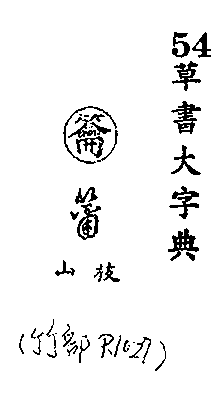 54
草書大字典
枝山
(竹部 P.1027)